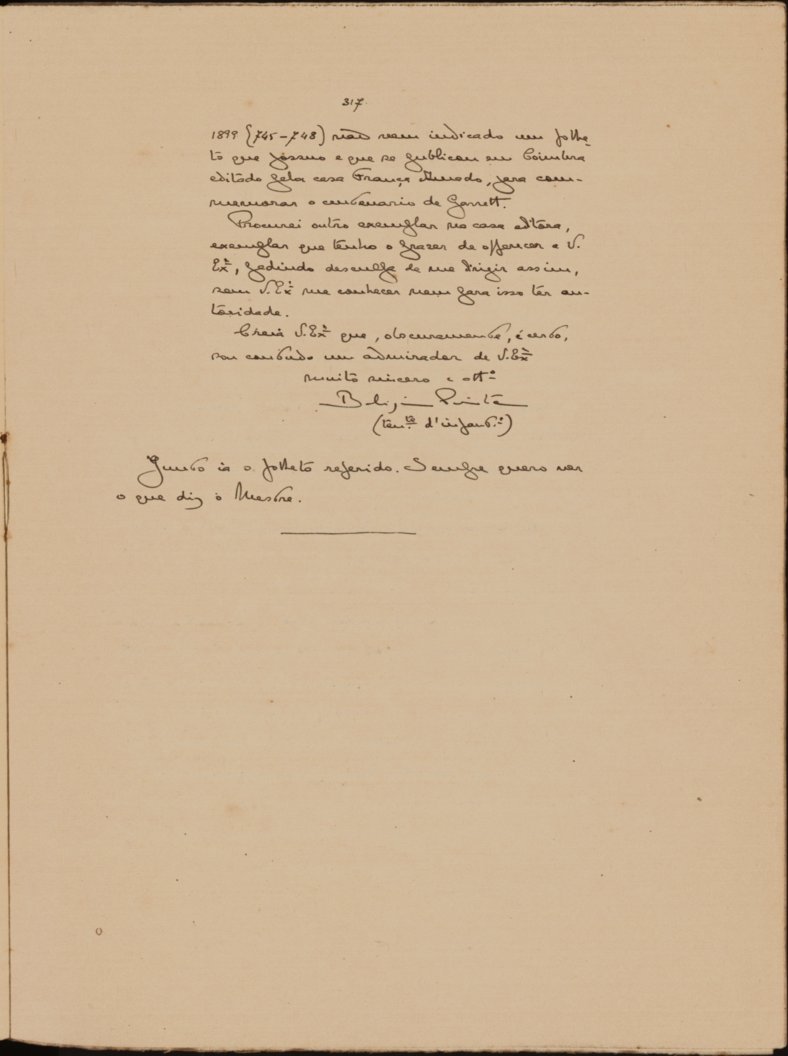 317
1899 (745-748) não vem indicado um folhe-
to que possuo e que se publicou em Coimbra
editado pela casa França Amado, para com-
memorar o centenario de Garrett.
Procurei outro exemplar na casa editora,
exemplar que tenho o prazer de offerecer a V.
Exª, pedindo desculpa de me dirigir assim,
sem V. Exª me conhecer nem para isso ter au-
toridade.
Creia V. Exª que, obscuramente, é certo,
sou contudo um admirador de V. Exª
muito sincero e attº
Belizario Pimenta
(tente d'infantª)
Junto ia o folheto referido. Sempre quero ver
o que diz o Mestre.